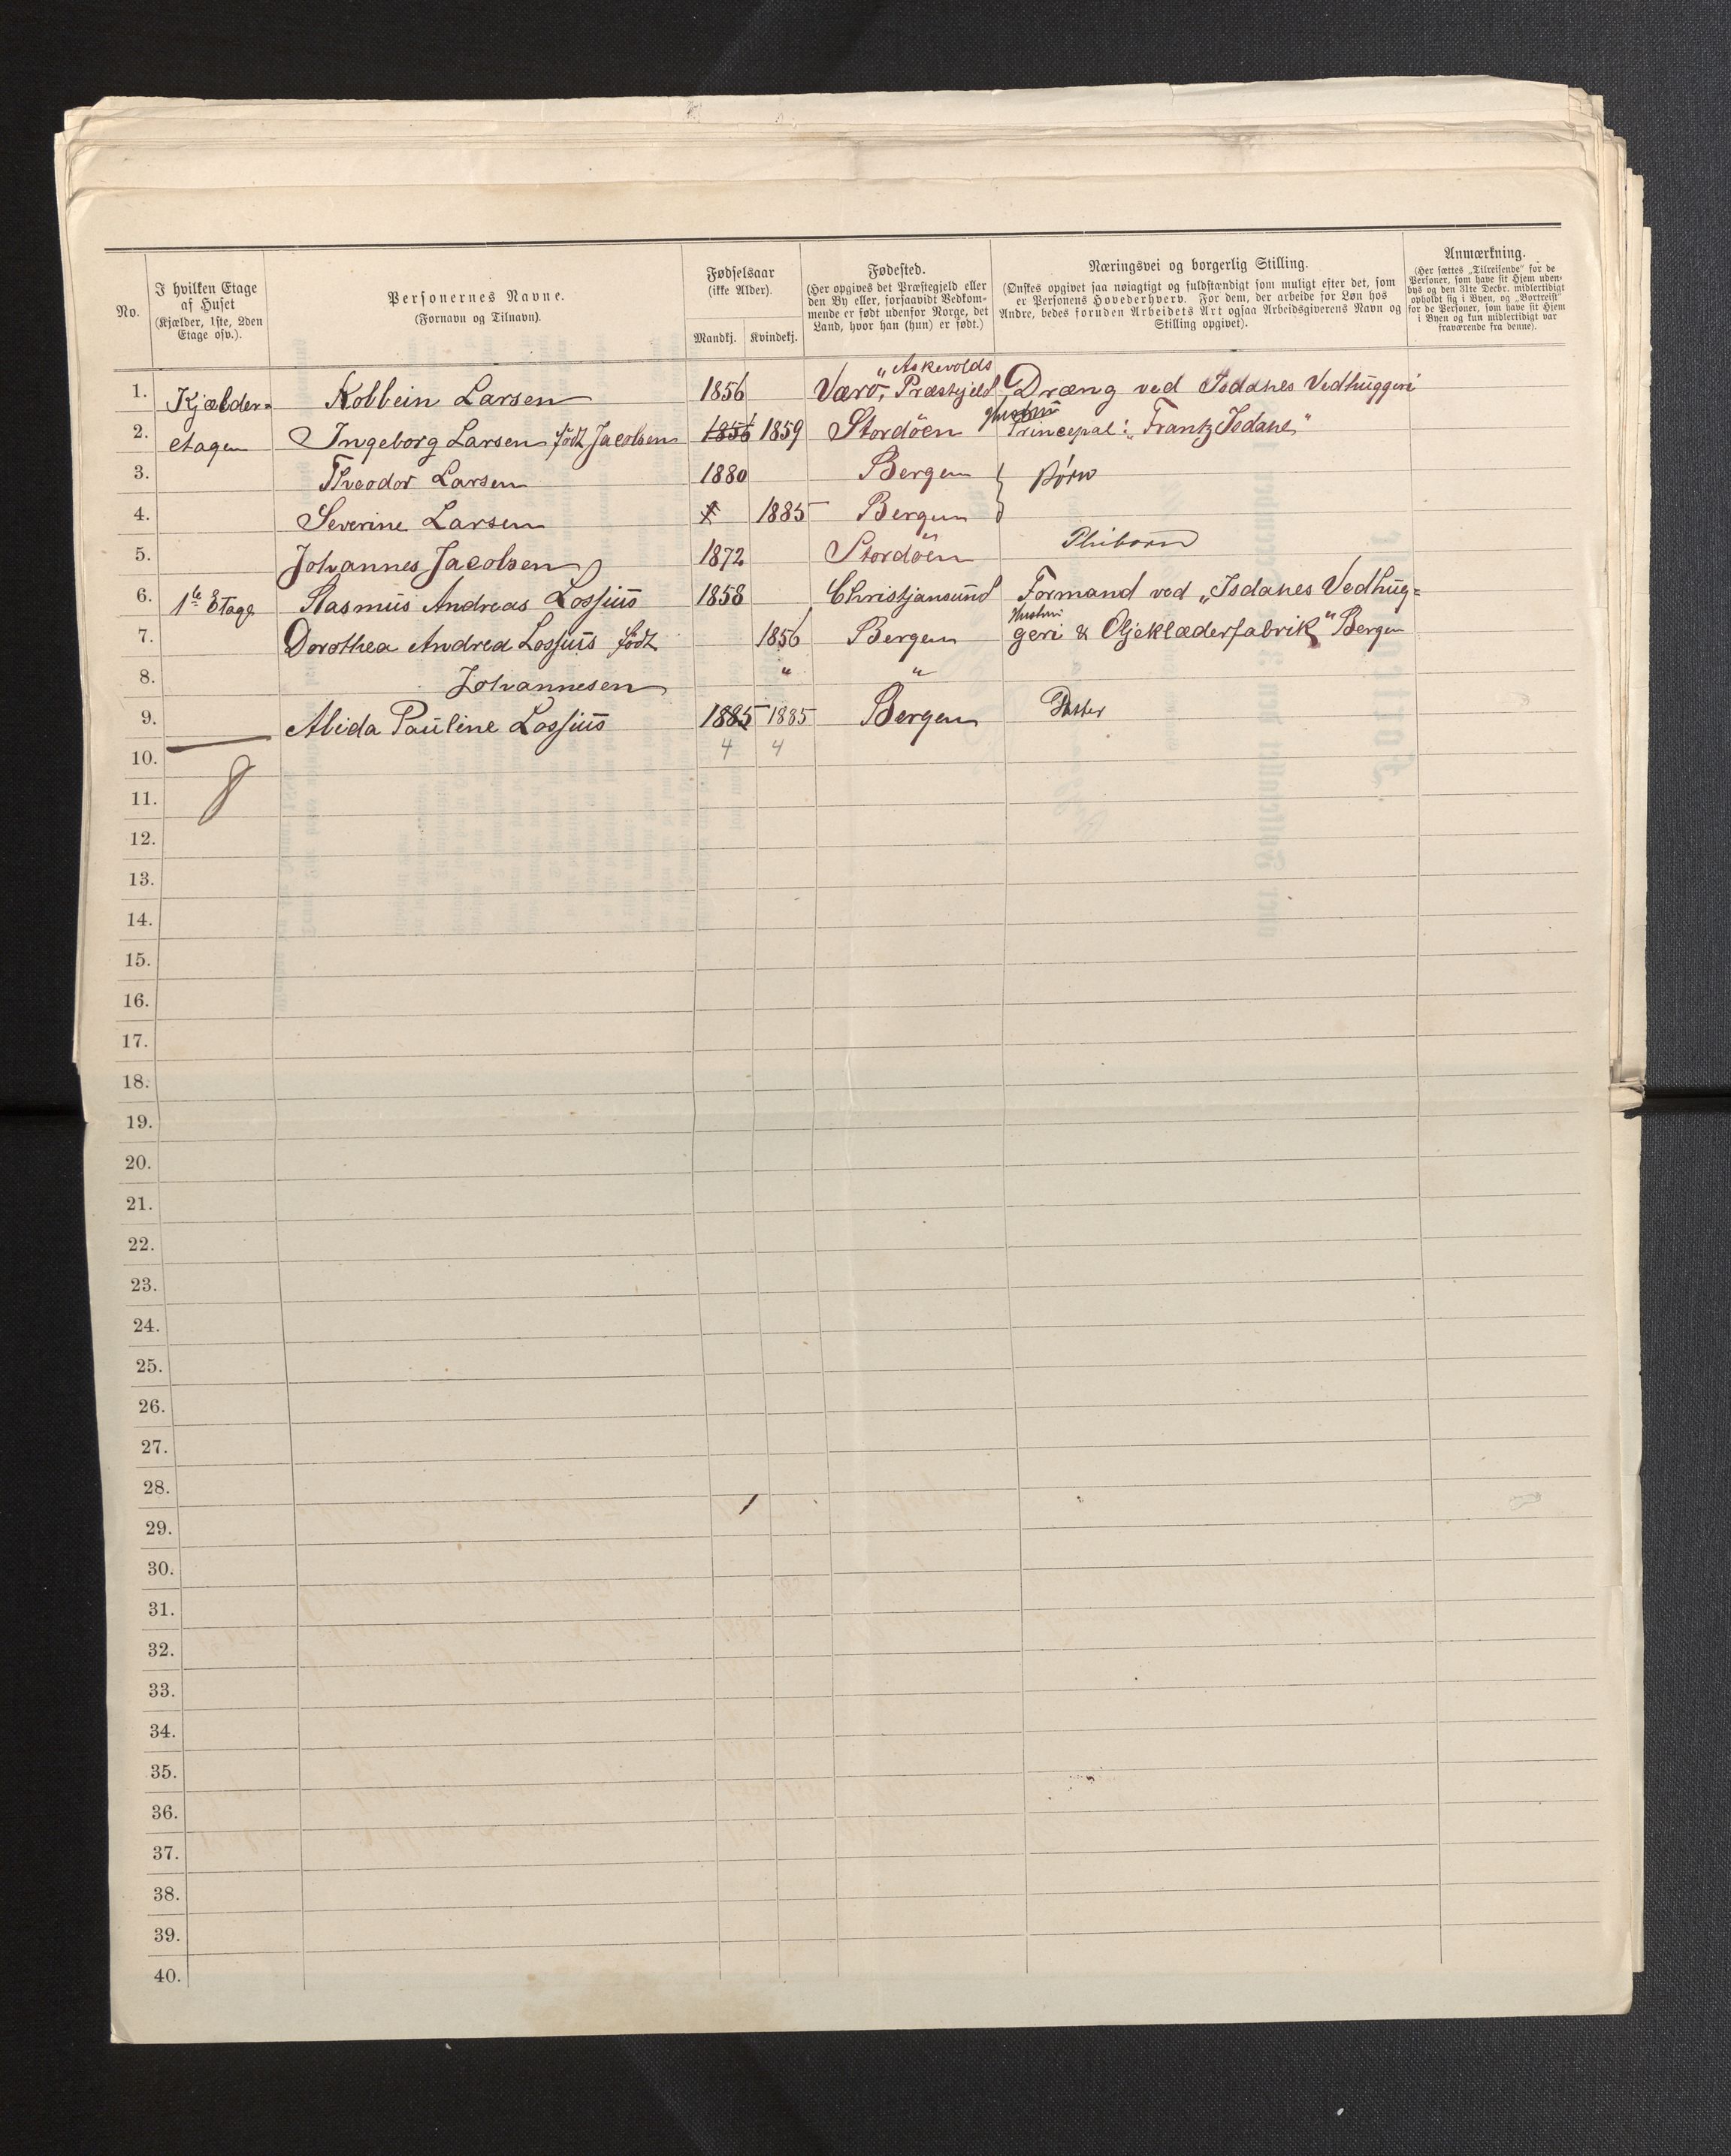 No.
I hvilken Etage
af Huset
(Kjælder, 1ste, 2den
Etage osv.).
Personernes Navne.
(Fornavn og Tilnavn).
Fødselsaar
(ikke Alder).
Mandkj. Kvindekj.
Fødested.
(Her opgives det Præstegjeld eller
den By eller, forsaavidt Vedkom-
mende er født udenfor Norge, det
Land, hvor han (hun) er født.)
Næringsvei og borgerlig Stilling.
(Ønskes opgivet saa nøiagtigt og fuldstændigt som muligt efter det, som
er Personens Hovederhverv. For dem, der arbeide for Løn hos
Andre, bedes foruden Arbeidets Art ogsaa Arbeidsgiverens Navn og
Stilling opgivet).
Anmærkning.
(Her sættes „Tilreisende" for de
Personer, som have sit Hjem uden-
bys og den 31te Decbr. midlertidigt
opholdt sig i Byen, og „Bortreist"
for de Personer, som have sit Hjem
i Byen og kun midlertidigt var
fraværende fra denne).
„Askevolds
1. Kjælder- Kolbein Larsen 1856 Værv, Præstgjeld Dræng ved Isdahls Vedhuggeri
Hustru
2. etagen Ingeborg Larsen født Jacobsen 1856 1859 Stordöen Principal: „Frantz Isdahl"
3. Theodor Larsen 1880 Bergen } Børn
4. Severine Larsen 1885 Bergen
5. Johannes Jacobsen 1872 Stordöen Pleibarn
6. 1te Etage Rasmus Andreas Lossius 1858 Christjansund Formand ved „Isdahls Vedhug=
Hustru
7. Dorothea Andrea Lossius født 1856 Bergen geri & Oljeklæderfabrik" Bergen
8. Johannesen " "
9. Alida Pauline Lossius 1885 1885 Bergen Datter
10. 4 4
11. 8
12.
13.
14.
15.
16.
17.
18.
19.
20.
21.
22.
23.
24.
25.
26.
27.
28.
29.
30.
31.
32.
33.
34.
35.
36.
37.
38.
39.
40.